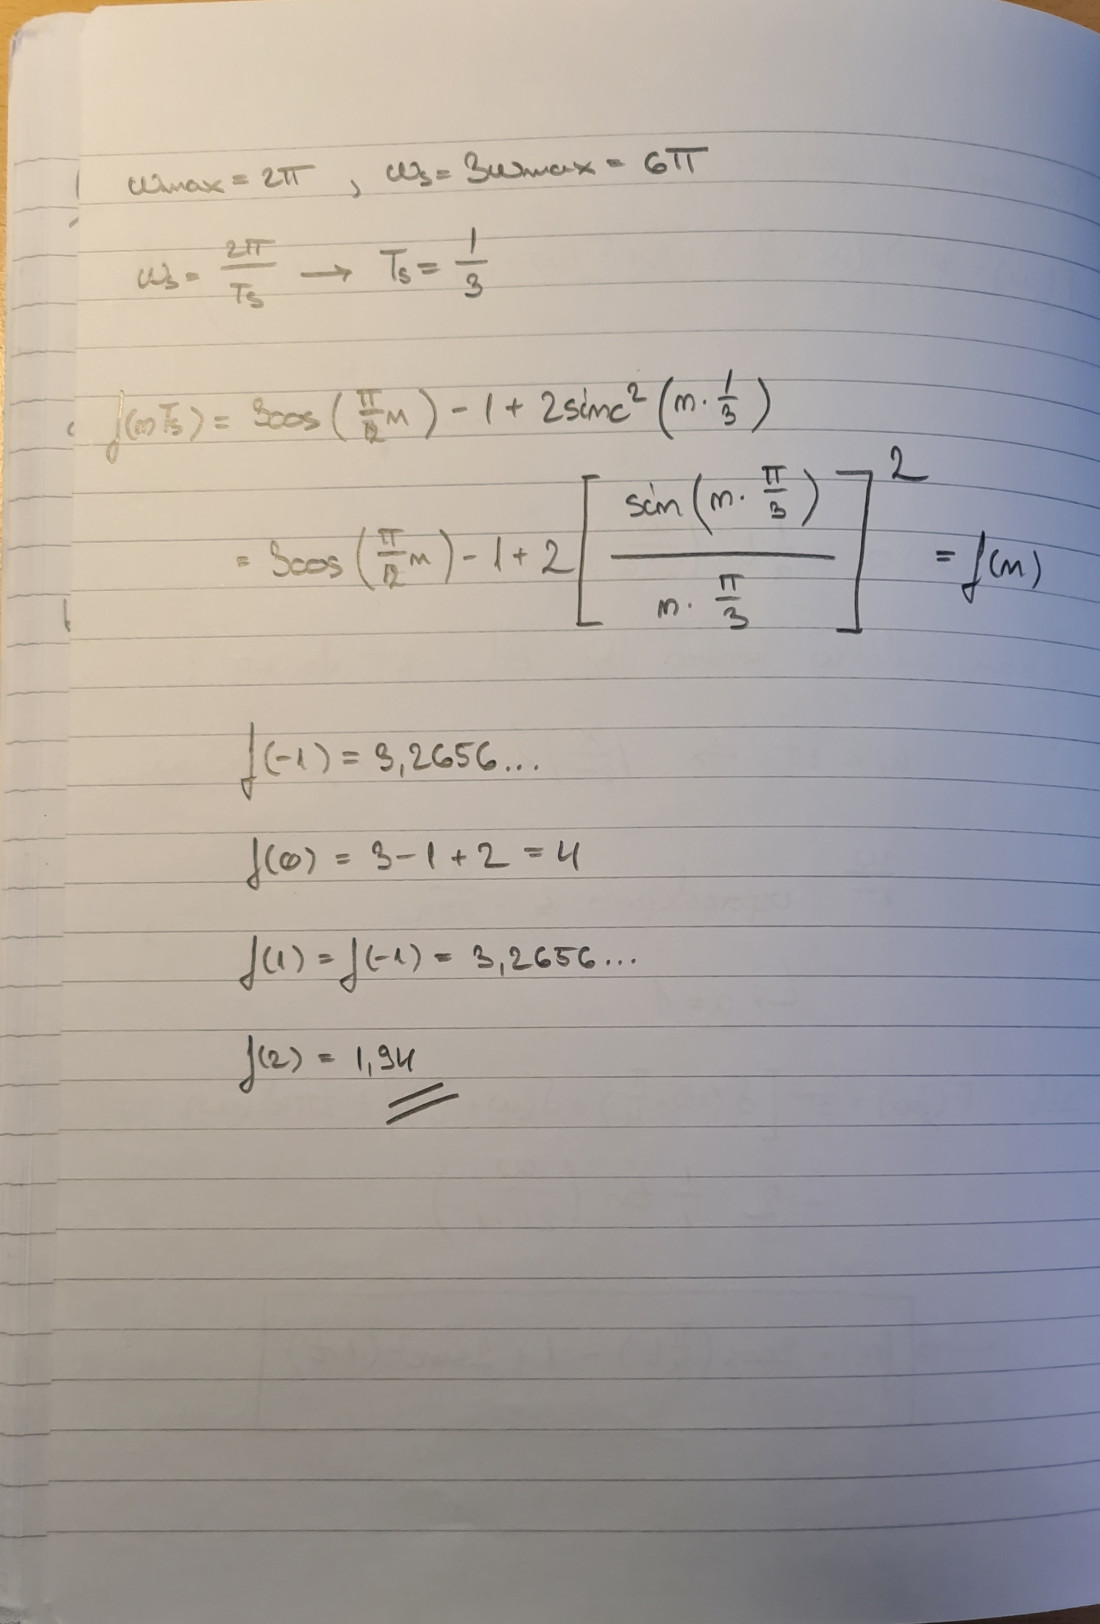 ωmax = 2π , ωs = 3ωmax = 6π
ωs = 2π/Ts → Ts = 1/3
f(nTs) = 3cos(π/12 n) - 1 + 2sinc²(n·1/3)
= 3cos(π/12 n) - 1 + 2[sin(n·π/3)/(n·π/3)]² = f(n)
f(-1) = 3,2656...
f(0) = 3-1+2 = 4
f(1) = f(-1) = 3,2656...
f(2) = 1,94